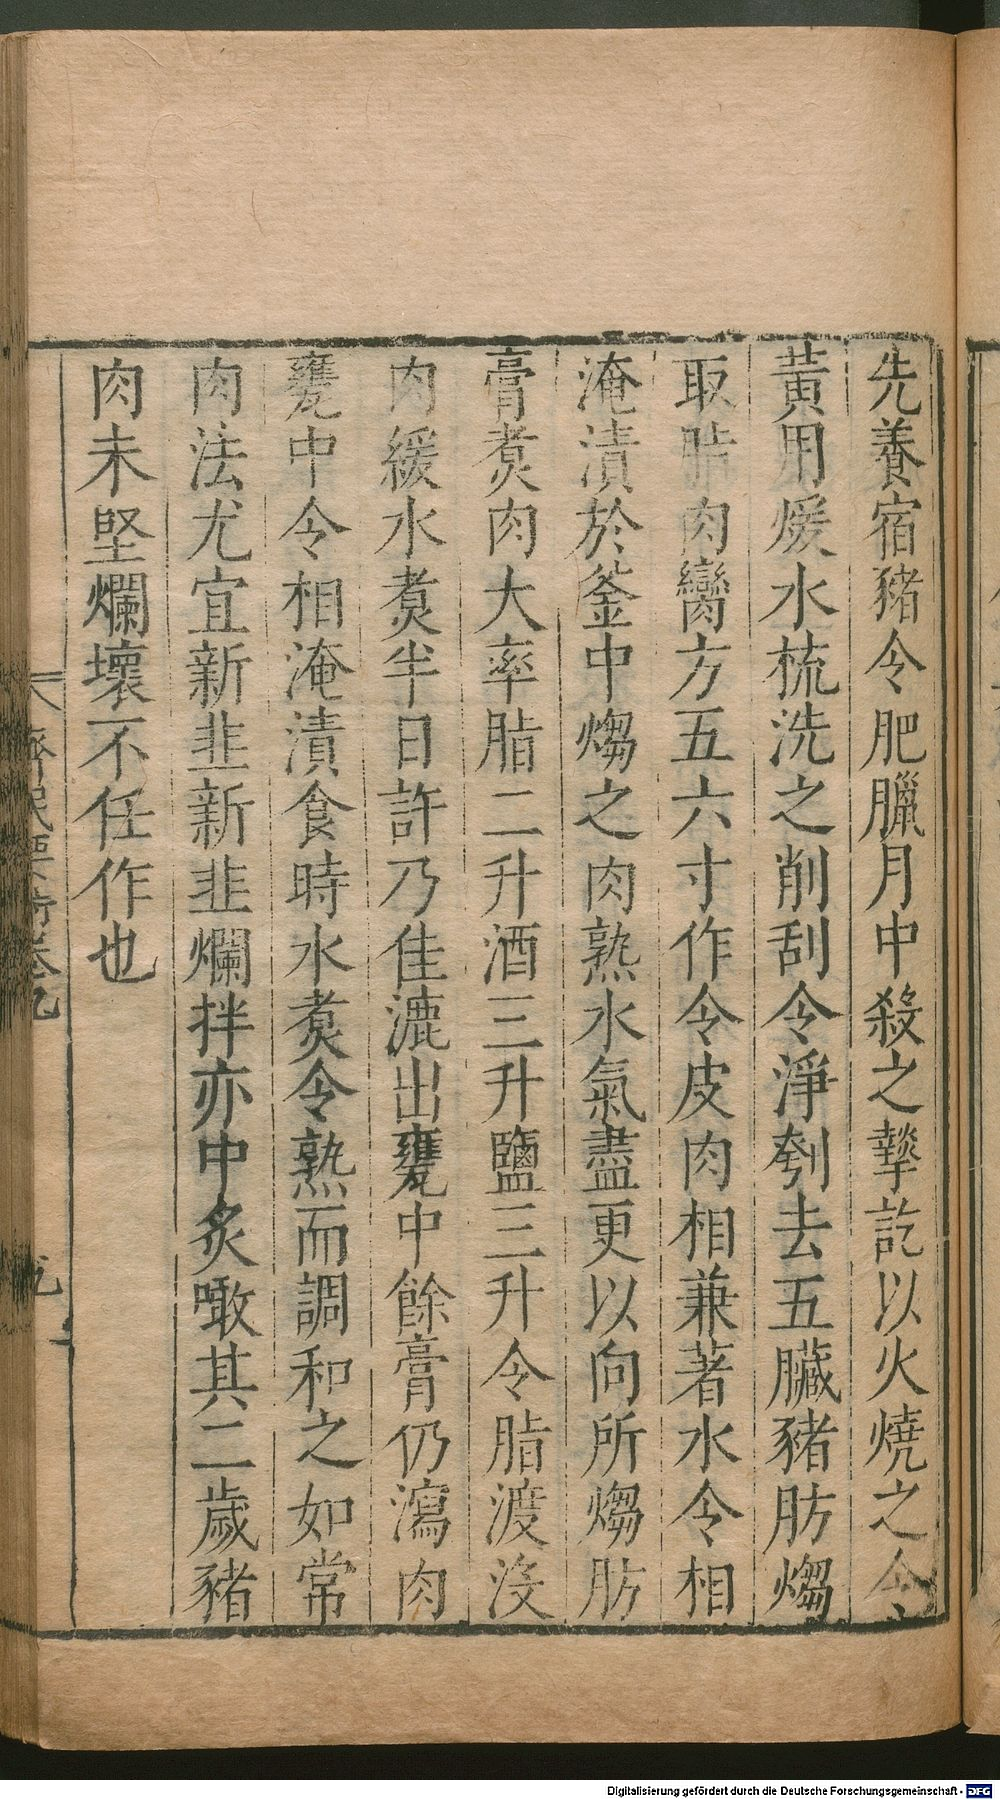 先養宿豬令肥臘月中殺之摯訖以火燒之令
黃用煖水梳洗之削刮令淨刳去五臟豬肪煼
取脂肉臠方五六寸作令皮肉相兼著水令相
淹漬於釜中煼之肉熟水氣盡更以向所煼肪
膏煑肉大率脂二升酒三升鹽三升令脂渡沒
肉緩水煑半日許乃佳漉出甕中餘膏仍瀉肉
甕中令相淹漬食時水煑令熟而調和之如常
肉法尤宜新韭新韭爛拌亦中炙噉其二歲豬
肉未堅爛壞不任作也
齊民要術卷九
Digitalisierung gefördert durch die Deutsche Forschungsgemeinschaft - DFG